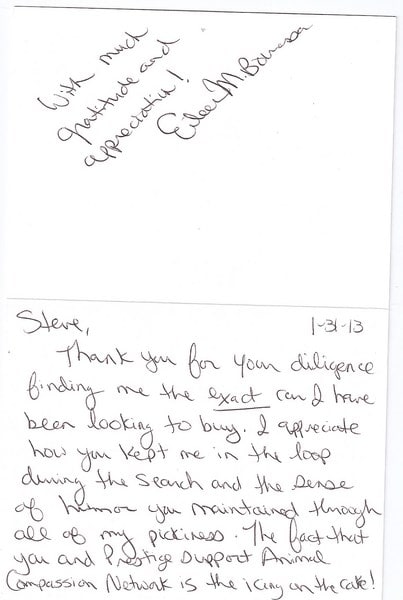 With much
gratitude and
appreciation!
M.
Steve,
1-31-13
Thank you for your diligence
finding me the exact car I have
been looking to buy. I appreciate
how you kept me in the loop
during the search and the sense
of humor you maintained through
all of my pickiness. The fact that
you and Prestige support Animal
Compassion Network is the icing on the cake!